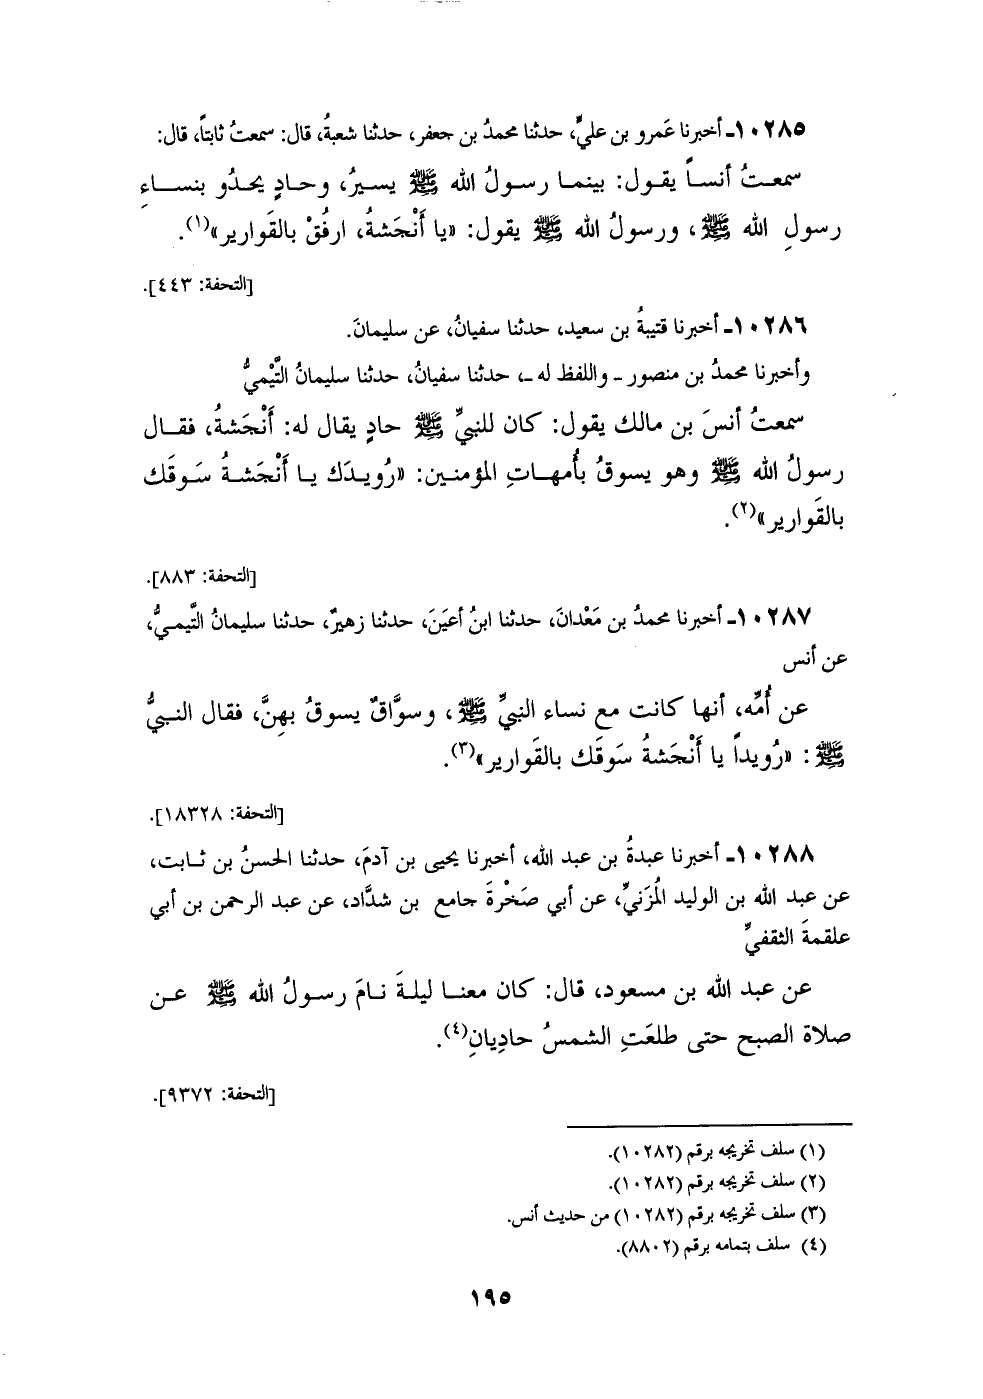 ١٠٢٨٥ـ أخبرنا عَمرو بن عليٍّ، حدثنا محمدُ بن جعفر، حدثنا شعبةُ، قال: سمعتُ ثابتاً، قال:
سمعتُ أنساً يقول: بينما رسولُ الله ﷺ يسيرُ، وحادٍ يحدُو بنساءِ
رسولِ الله ﷺ، ورسولُ الله ﷺ يقول: «يا أَنْجَشةُ، ارفُقْ بالقَوارير»(١).
[التحفة: ٤٤٣].
١٠٢٨٦ـ أخبرنا قتيبةُ بن سعيد، حدثنا سفيانُ، عن سليمانَ.
وأخبرنا محمدُ بن منصور ـ واللفظ له ـ، حدثنا سفيانُ، حدثنا سليمانُ التَّيْميُّ
سمعتُ أنسَ بن مالك يقول: كان للنبيِّ ﷺ حادٍ يقال له: أَنْجَشةُ، فقال
رسولُ الله ﷺ وهو يسوقُ بأُمهاتِ المؤمنين: «رُويدَك يا أَنْجَشةُ سَوقَك
بالقَوارير»(٢).
[التحفة: ٨٨٣].
١٠٢٨٧ـ أخبرنا محمدُ بن مَعْدانَ، حدثنا ابنُ أعيَنَ، حدثنا زهيرٌ، حدثنا سليمانُ التَّيميُّ،
عن أنس
عن أُمِّه، أنها كانت مع نساء النبيِّ ﷺ، وسوَّاقٌ يسوقُ بهِنَّ، فقال النبيُّ
ﷺ: «رُويداً يا أَنْجَشةُ سَوقَك بالقَوارير»(٣).
[التحفة: ١٨٣٢٨].
١٠٢٨٨ـ أخبرنا عبدةُ بن عبد الله، أخبرنا يحيى بن آدمَ، حدثنا الحسنُ بن ثابت،
عن عبد الله بن الوليد المُزَنيِّ، عن أبي صَخْرةَ جامع بن شدَّاد، عن عبد الرحمن بن أبي
علقمةَ الثقفيِّ
عن عبد الله بن مسعود، قال: كان معنا ليلةَ نامَ رسولُ الله ﷺ عن
صلاة الصبح حتى طلعَتِ الشمسُ حادِيانِ(٤).
[التحفة: ٩٣٧٢].
(١) سلف تخريجه برقم (١٠٢٨٢).
(٢) سلف تخريجه برقم (١٠٢٨٢).
(٣) سلف تخريجه برقم (١٠٢٨٢) من حديث أنس.
(٤) سلف بتمامه برقم (٨٨٠٢).
١٩٥